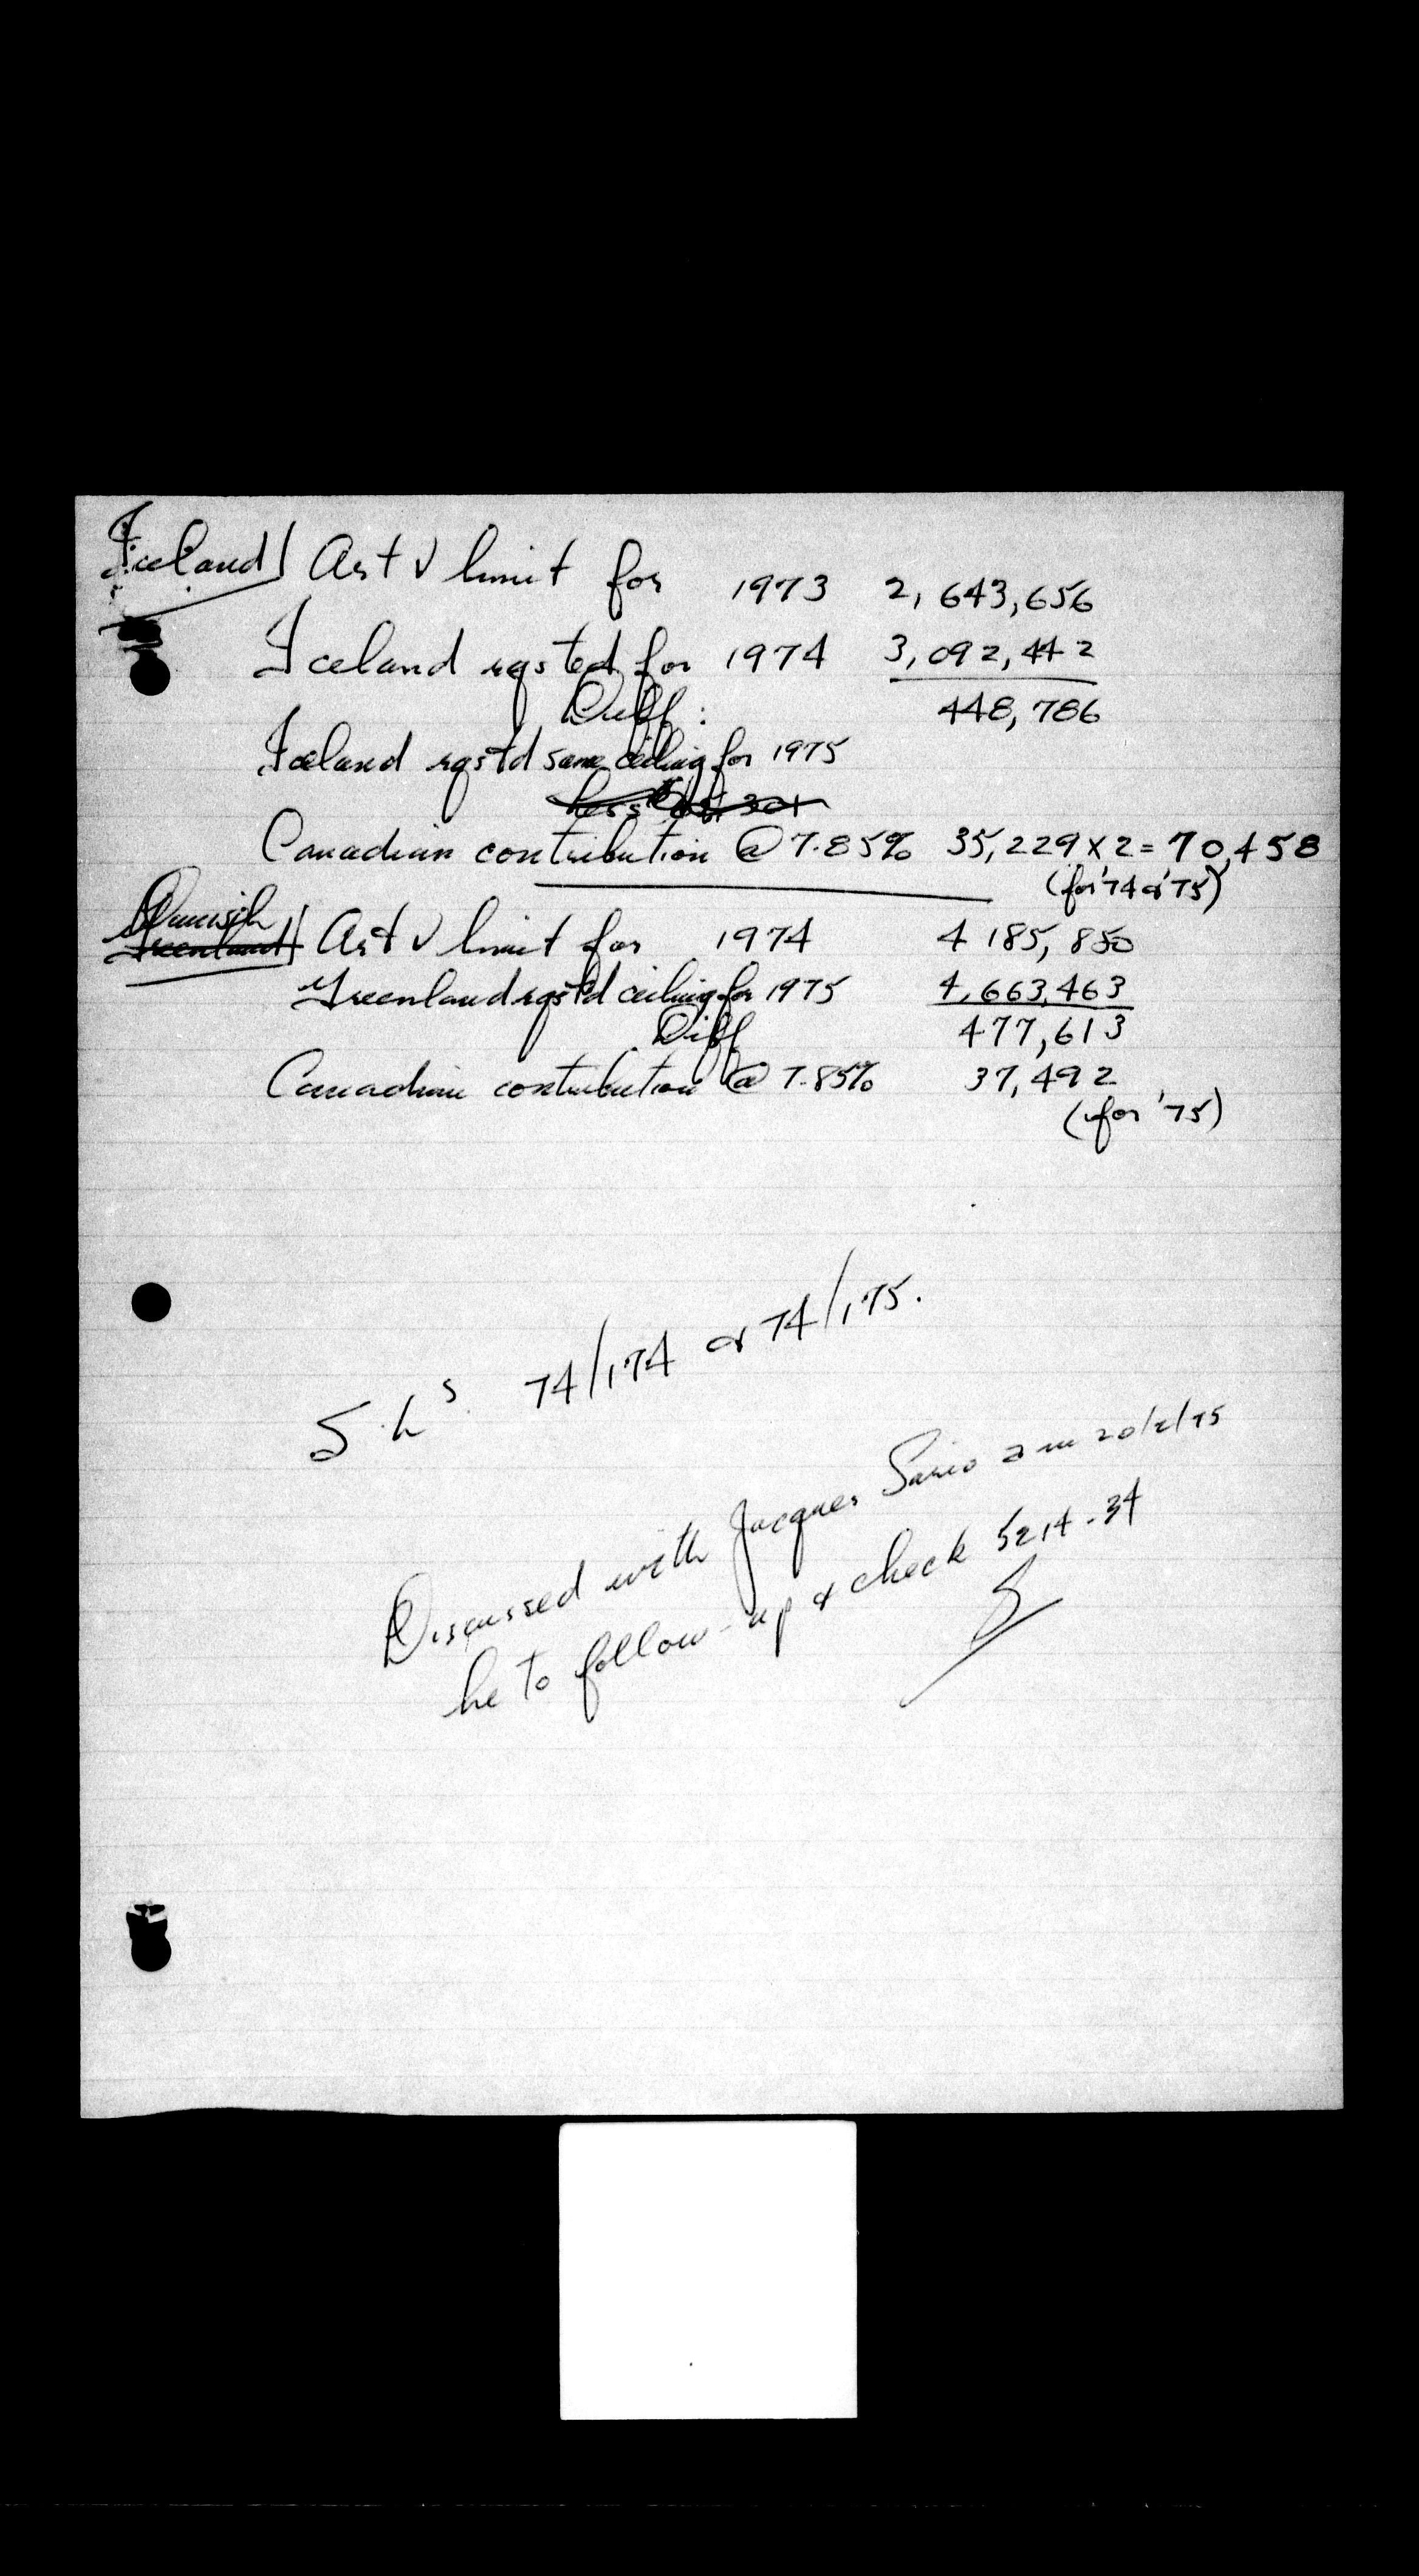 Iceland Art V limit for 1973 2,643,656
Iceland rqsted for 1974 3,092,442
Diff: 448,786
Iceland rqst'd same ceiling for 1975
Less
Canadian contribution @ 7.85% 35,229 x 2 = 70,458
(for '74 & '75)
Danish
Greenland Art V limit for 1974 4 185,850
Greenland rqst'd ceiling for 1975 4,663,463
Diff 477,613
Canadian contribution @ 7.85% 37,492
(for '75)
S.L's 74/174 & 74/175.
Discussed with Jacques on 20/2/75
he to follow-up & check 5214-34